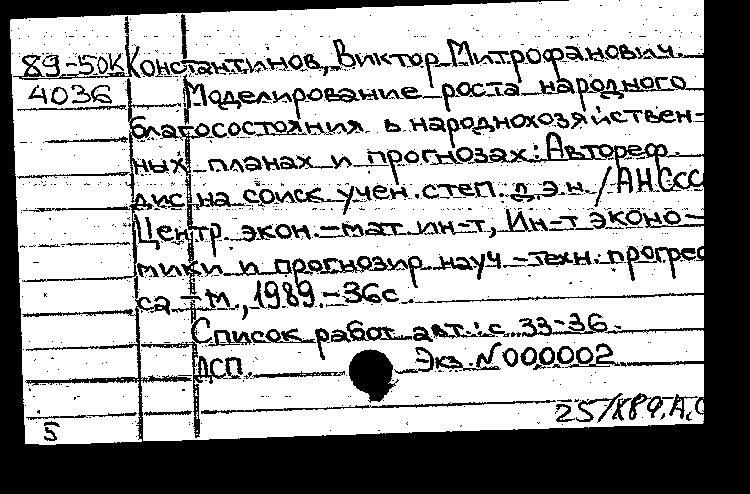 89-50К Константинов, Виктор Митрофанович.
4036 Моделирование роста народного
благосостояния в народнохозяйствен-
ных планах и прогнозах: Автореф.
дис на соиск учен. степ. д.э.н. /АНСССР
Центр. экон.-мат ин-т, Ин-т эконо-
мики и прогнозир науч-техн. прогрес
са - М., 1989.-36с.
Список работ авт.: с 33-36.
ДСП. Экз. N000002
5